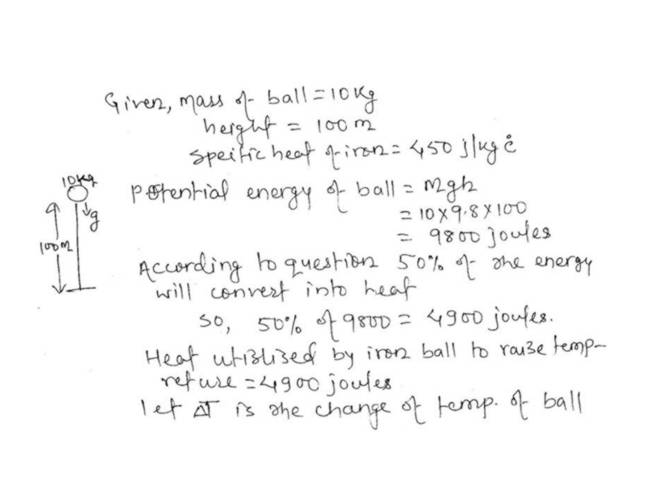 Given, mass of ball = 10 Kg
height = 100 m
Speific heat of iron = 450 J/kg °C
10 Kg
g
100 m
Potential energy of ball = mgh
= 10 x 9.8 x 100
= 9800 joules
According to question 50% of the energy
will convert into heat
so, 50% of 9800 = 4900 joules.
Heat utilised by iron ball to raise temp-
reture = 4900 joules
let ΔT is the change of temp. of ball